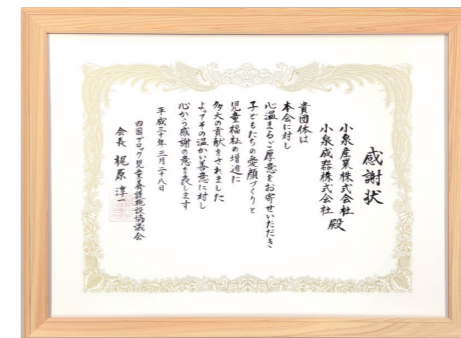 感謝状
小泉産業株式会社
小泉成器株式会社
殿
貴団体は
本会に対し
心温まるご厚意をお寄せいただき
子どもたちの笑顔づくりと
児童福祉の増進に
多大の貢献をされました
よってその温かい善意に対し
心から感謝の意を表します
平成三十年三月二十八日
四国ブロック児童養護施設協議会
会長 梶原 淳一